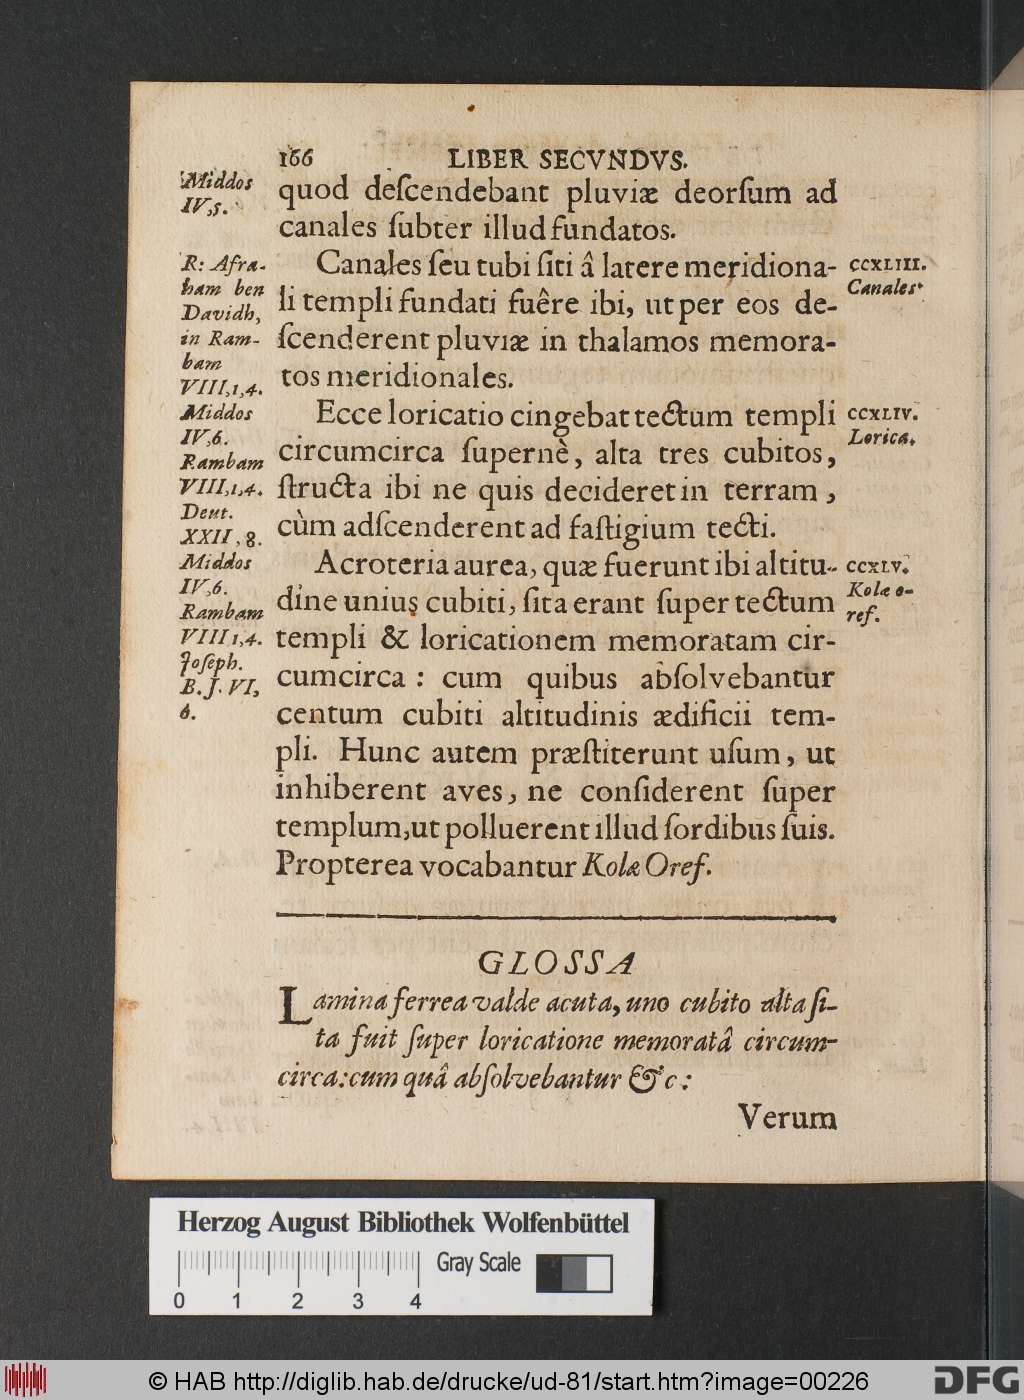 166 LIBER SECVNDVS.
Middos
IV,5.
quod deſcendebant pluviæ deorſum ad
canales ſubter illud fundatos.
R: Afra-
ham ben
Davidh,
in Ram-
bam
VIII,1,4.
Canales ſeu tubi ſiti â latere meridiona-
li templi fundati fuêre ibi, ut per eos de-
ſcenderent pluviæ in thalamos memora-
tos meridionales.
CCXLIII.
Canales
Middos
IV,6.
Rambam
VIII,1,4.
Deut.
XXII,8.
Ecce loricatio cingebat tectum templi
circumcirca ſupernè, alta tres cubitos,
ſtructa ibi ne quis decideret in terram,
cùm adſcenderent ad faſtigium tecti.
CCXLIV.
Lorica.
Middos
IV,6.
Rambam
VIII 1,4.
Joſeph.
B. J. VI,
6.
Acroteria aurea, quæ fuerunt ibi altitu-
dine unius cubiti, ſita erant ſuper tectum
templi & loricationem memoratam cir-
cumcirca: cum quibus abſolvebantur
centum cubiti altitudinis ædificii tem-
pli. Hunc autem præſtiterunt uſum, ut
inhiberent aves, ne conſiderent ſuper
templum, ut polluerent illud ſordibus ſuis.
Propterea vocabantur Kolæ Oref.
CCXLV.
Kolæ o-
ref.
GLOSSA
Lamina ferrea valde acuta, uno cubito alta ſi-
ta fuit ſuper loricatione memoratâ circum-
circa: cum quâ abſolvebantur &c:
Verum
Herzog August Bibliothek Wolfenbüttel
Gray Scale
0 1 2 3 4
© HAB http://diglib.hab.de/drucke/ud-81/start.htm?image=00226
DFG